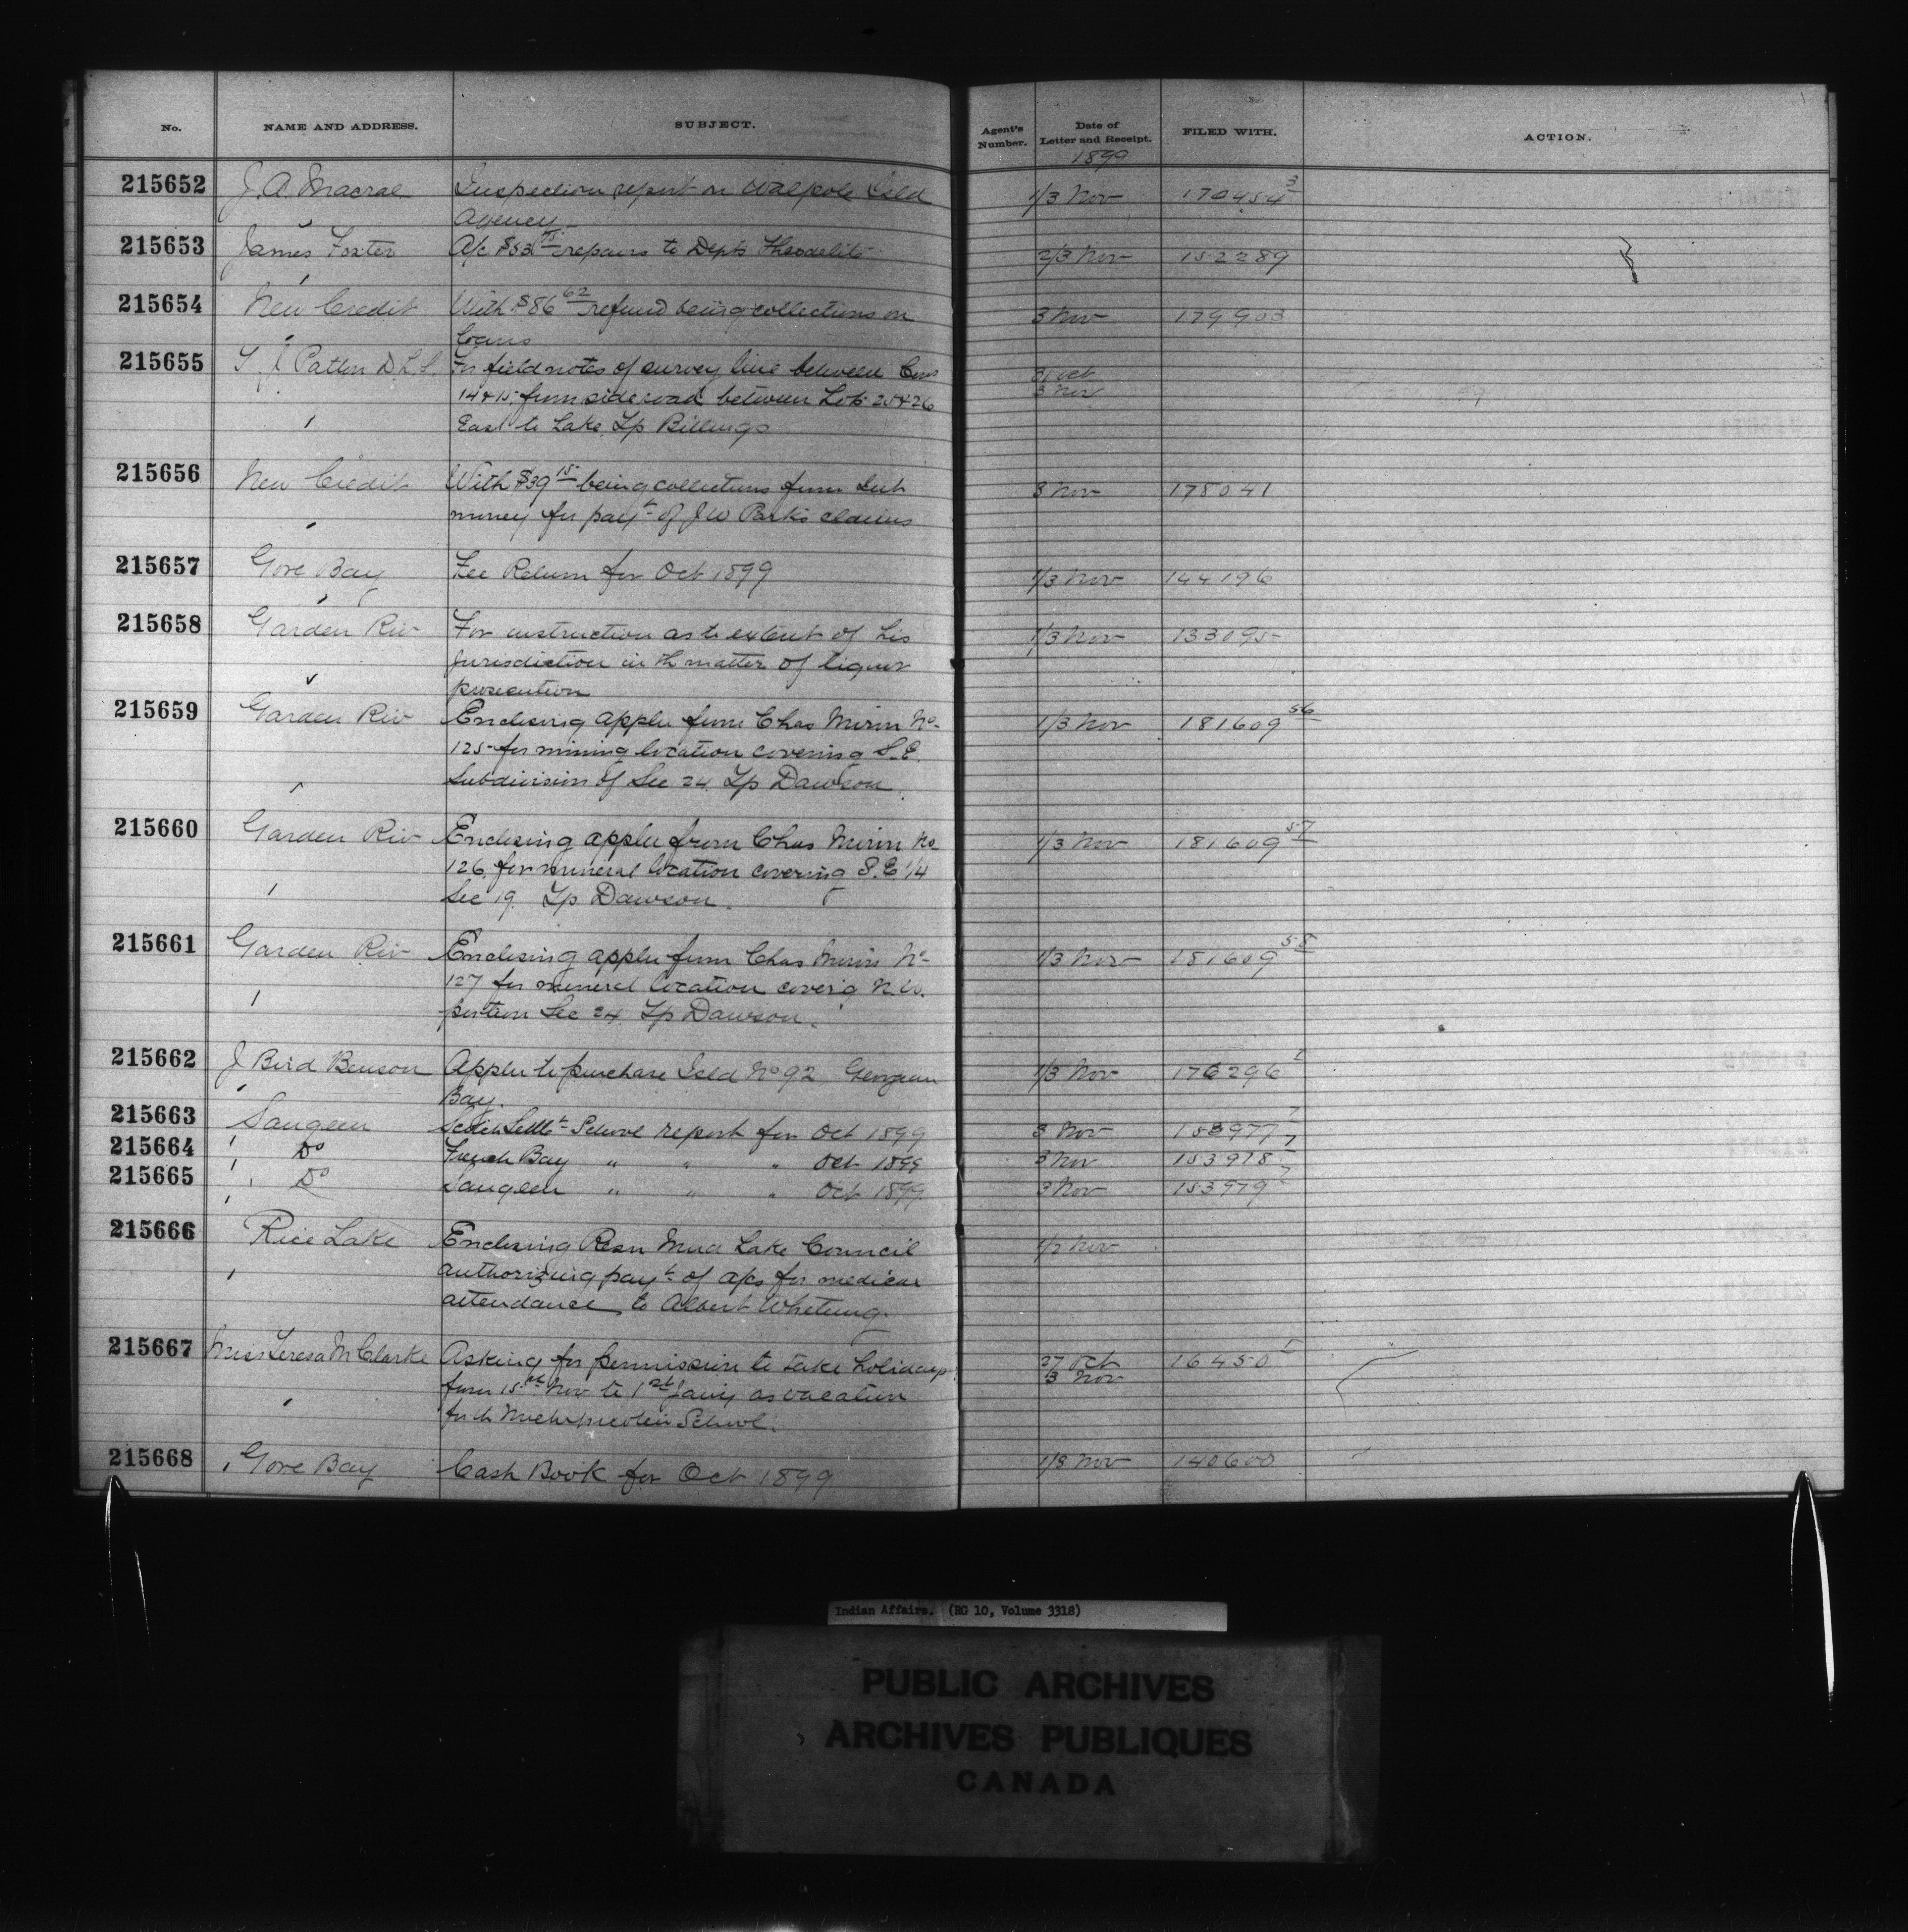 No. NAME AND ADDRESS. SUBJECT. Agent's Number. Date of Letter and Receipt. FILED WITH. ACTION.
1899
215652 J. A. Macrae Inspection report on Walpole Isld 1/3 Nov 170454 3
Agency
215653 James Foster A/c $53 75 repairs to Depts Theodolite 2/3 Nov 152289
215654 New Credit With $86 62 refund being collections on 3 Nov 179903
loans
215655 T. J. Patten D.L.S. For field notes of survey line between Cons 31 Oct
14 & 15, from side road between Lots 25 & 26 3 Nov
East to Lake, Tp Billings
215656 New Credit With $39 15 being collections from Int 3 Nov 178041
money for payt of J W Parks claims
215657 Gore Bay Fee Return for Oct 1899 1/3 Nov 144196
215658 Garden Riv For instruction as to extent of his 1/3 Nov 133095
jurisdiction in th matter of liquor
prosecution
215659 Garden Riv Enclosing appln from Chas No 1/3 Nov 181609 56
125 for mining location covering S.E.
Subdivision of Sec 24, Tp Dawson
215660 Garden Riv Enclosing appln from Chas No 1/3 Nov 181609 57
126, for mineral location covering S.E 1/4
Sec 19. Tp Dawson.
215661 Garden Riv Enclosing appln from Chas No 1/3 Nov 181609 58
127 for mineral location coverig N.W.
portion Sec 24, Tp Dawson.
215662 J Bird Benson Appln to purchase Isld No 92 Georgian 1/3 Nov 176296
Bay.
215663 Saugeen Scotch Settlt School report for Oct 1899 3 Nov 153977 7
215664 Do French Bay " " " Oct 1899 3 Nov 153978 7
215665 Do Saugeen " " " Oct 1899 3 Nov 153979 7
215666 Rice Lake Enclosing Resn Mud Lake Council 1/2 Nov
authorizing payt of a/cs for medical
attendance to Albert Whetung.
215667 Miss Teresa M Clarke Asking for permission to take holidays 27 Oct 16450
from 15th Nov to 1st Jany as vacation 3 Nov
for th Michipicoten School.
215668 Gore Bay Cash Book for Oct 1899 1/3 Nov 140600
Indian Affairs. (RG 10, Volume 3318)
PUBLIC ARCHIVES
ARCHIVES PUBLIQUES
CANADA